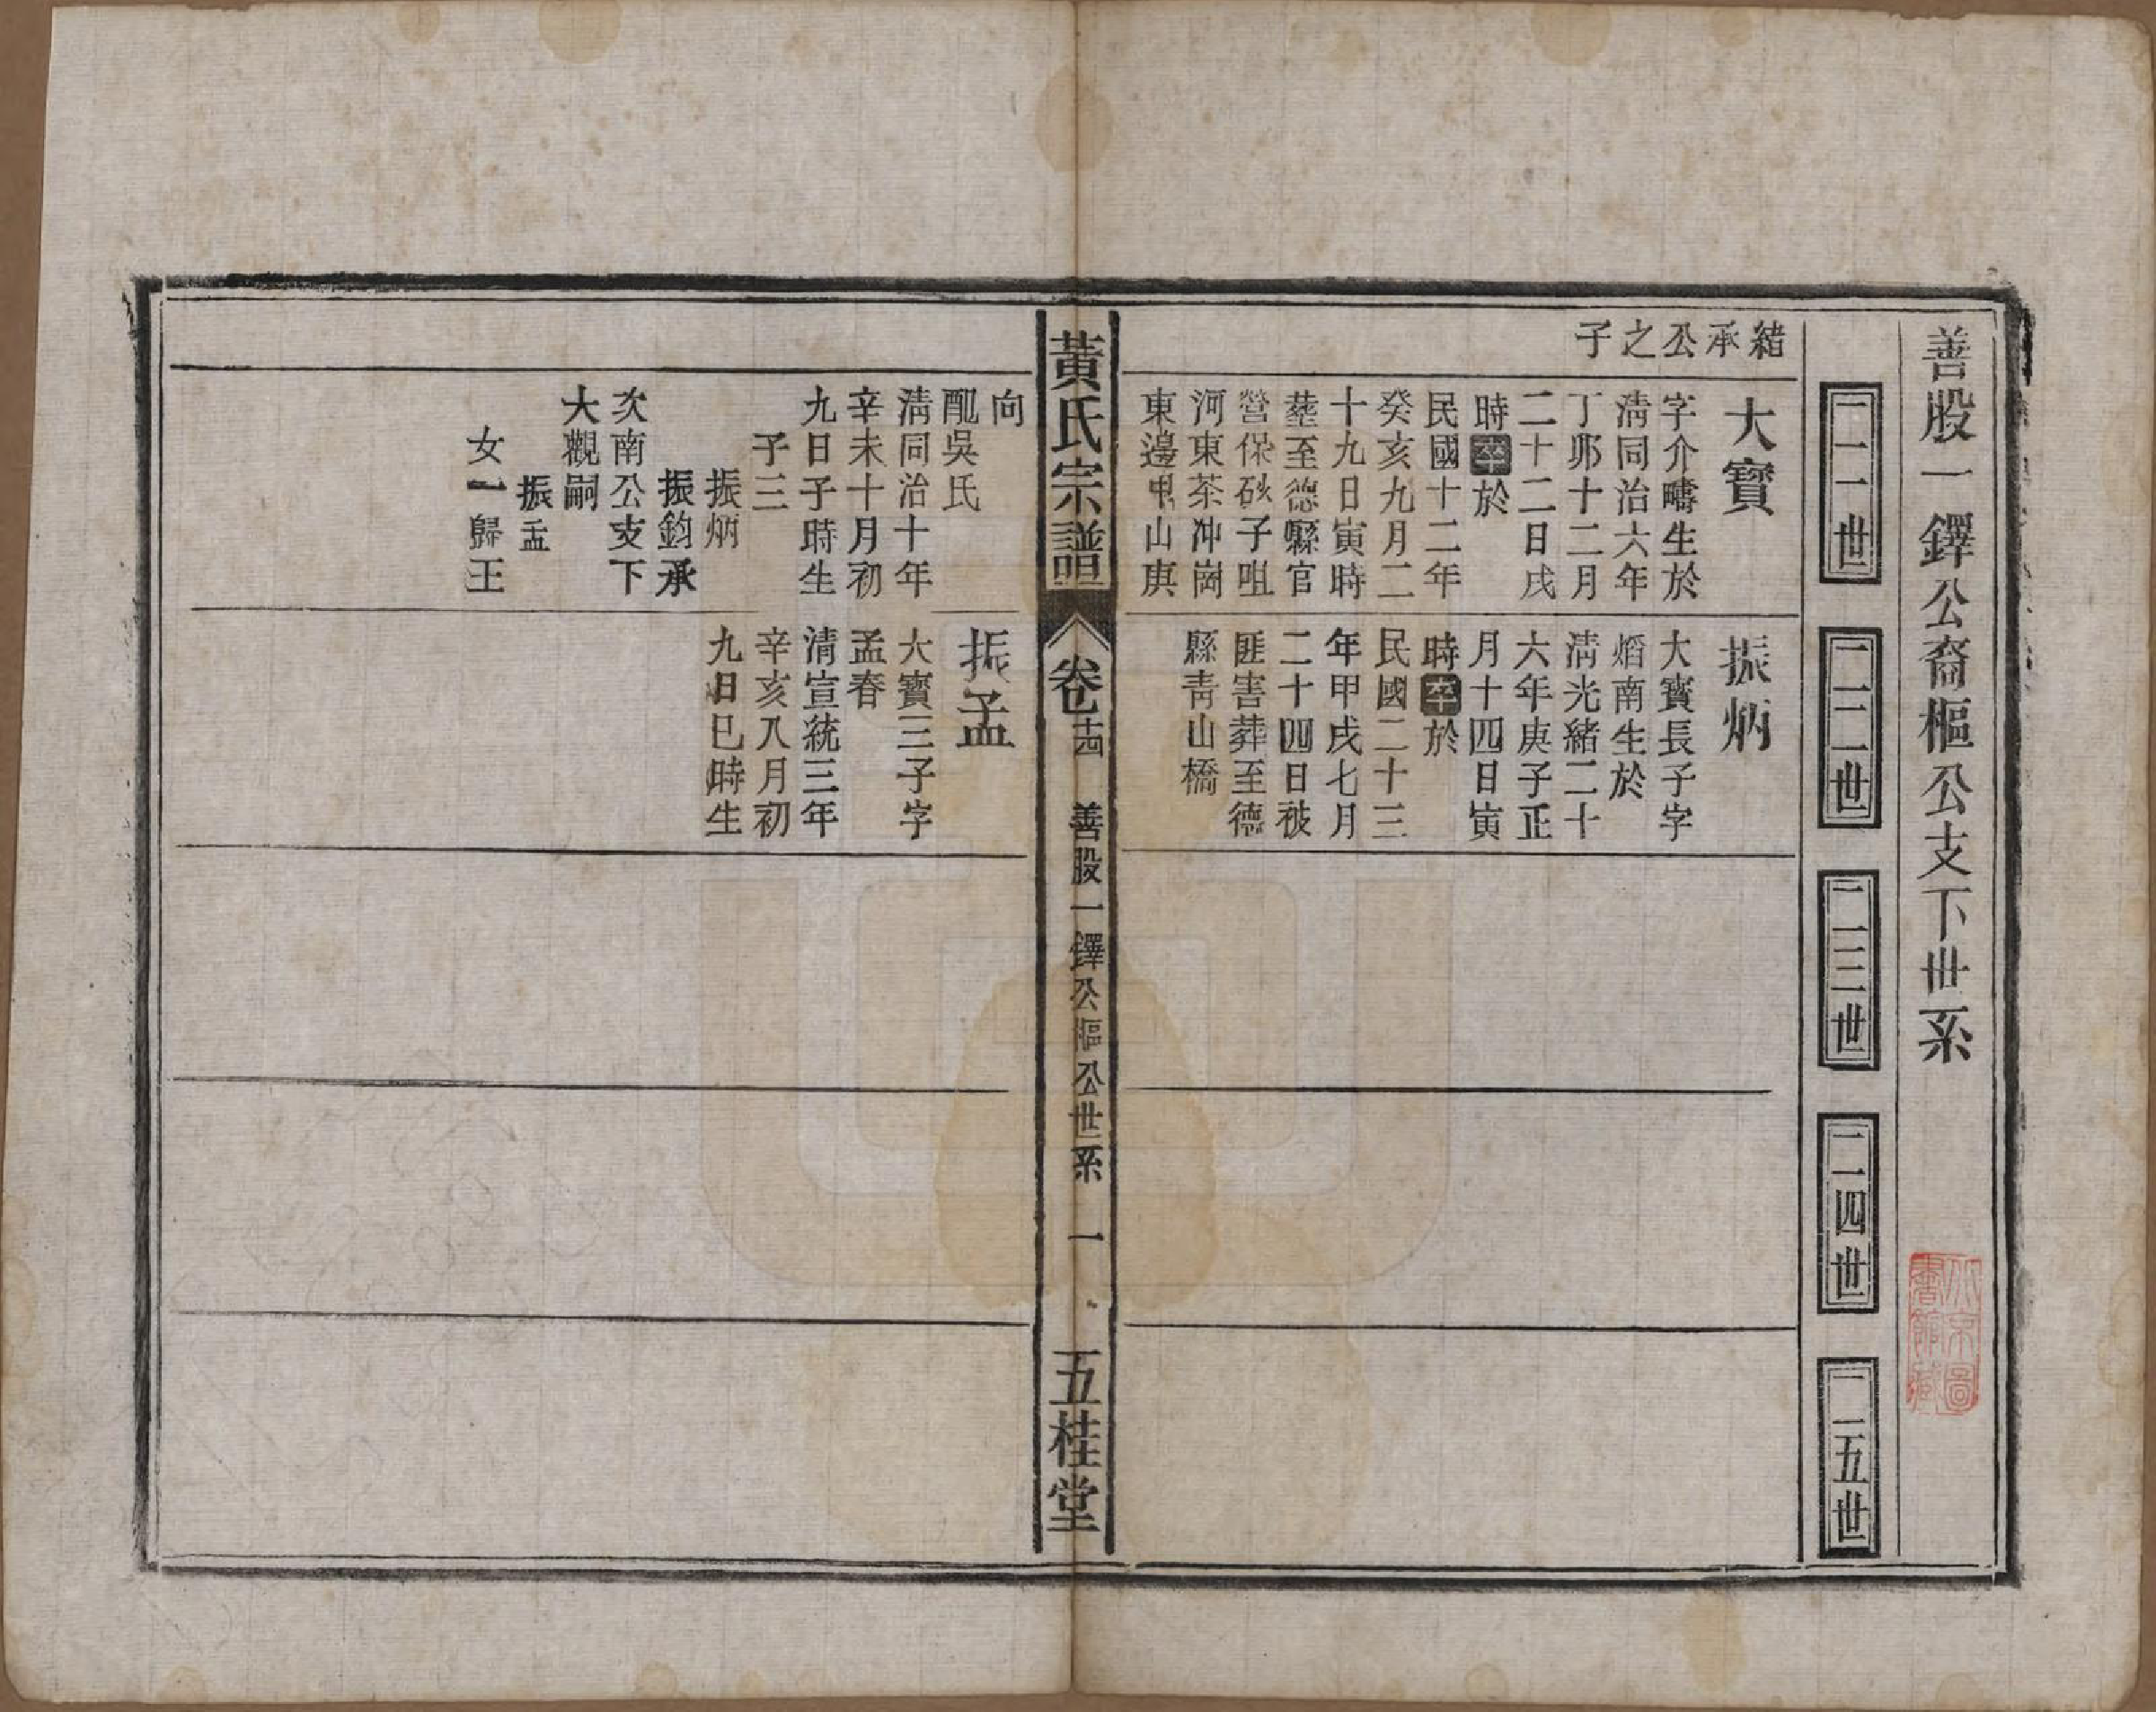 善股一鐸公裔樞公支下世系
二一世
二二世
二三世
二四世
二五世
緒承公之子
大寶
字介疇生於
淸同治六年
丁卯十二月
二十二日戌
時卒於
民國十二年
癸亥九月二
十九日寅時
塟至德縣官
營保砂子咀
河東茶冲崗
東邊甲山庚
振炳
大寳長子字
熖南生於
淸光緒二十
六年庚子正
月十四日寅
時卒於
民國二十三
年甲戌七月
二十四日被
匪害葬至德
縣靑山橋
黃氏宗譜
卷十四
善股一鐸公樞公世系
一
五桂堂
向
配吳氏
淸同治十年
辛未十月初
九日子時生
子三
振炳
振鈞承
次南公支下
大觀嗣
振孟
女一歸王
振孟
大寳三子字
孟春
清宣統三年
辛亥八月初
九日巳時生
北京圖
書館藏